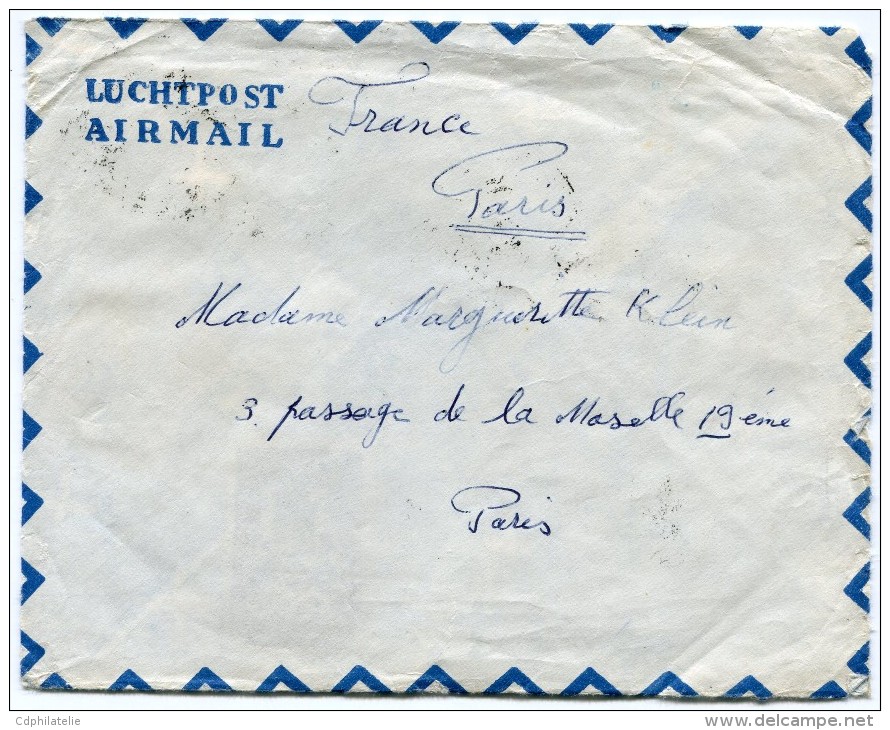 LUCHTPOST
AIRMAIL
France
Paris
Madame Margueritte Klein
3. passage de la Moselle 19ème
Paris
Cdphilatelie
delcampe.net